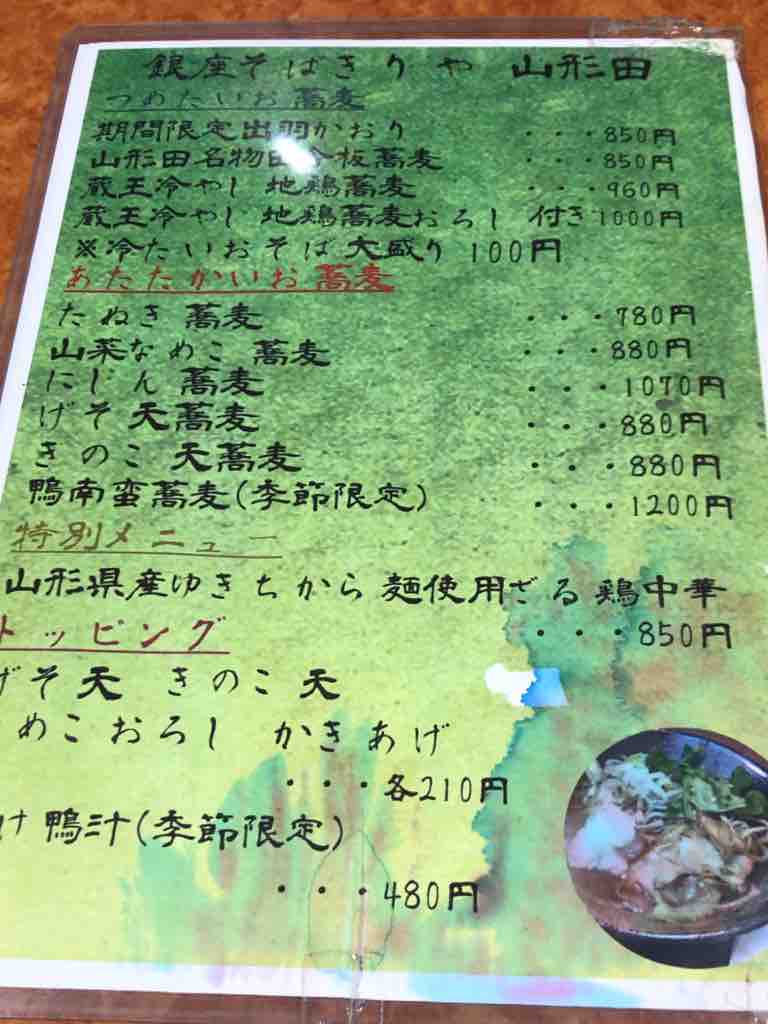 銀座そばきりや 山形田
つめたいお蕎麦
期間限定出羽かおり ・・・850円
山形田名物田舎板蕎麦 ・・・850円
蔵王冷やし 地鶏蕎麦 ・・・960円
蔵王冷やし 地鶏蕎麦おろし 付き1000円
※冷たいおそば大盛り 100円
あたたかいお蕎麦
たぬき蕎麦 ・・・780円
山菜なめこ 蕎麦 ・・・880円
にしん 蕎麦 ・・・1070円
げそ天蕎麦 ・・・880円
きのこ 天蕎麦 ・・・880円
鴨南蛮蕎麦(季節限定) ・・・1200円
特別メニュー
山形県産ゆきちから 麺使用ざる 鶏中華
・・・850円
トッピング
げそ天 きのこ 天
めこおろし かきあげ
・・・各210円
け 鴨汁(季節限定)
・・・480円